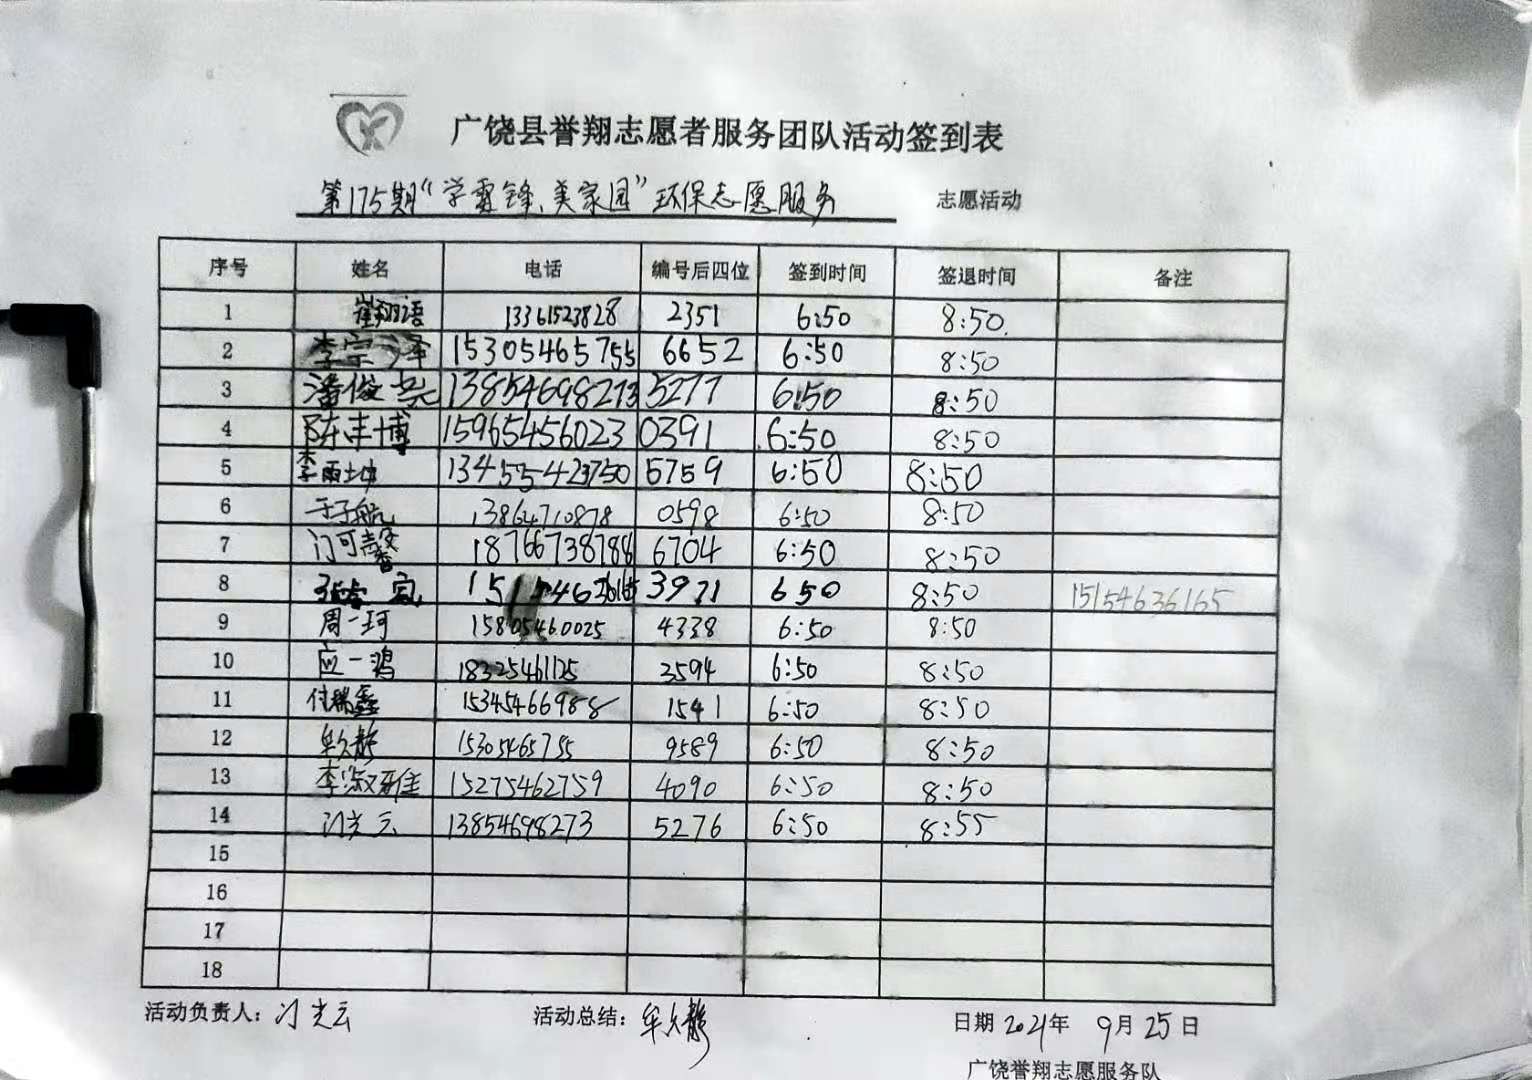 广饶县誉翔志愿者服务团队活动签到表
第175期“学雷锋、美家园”环保志愿服务 志愿活动
序号 姓名 电话 编号后四位 签到时间 签退时间 备注
1 崔翔语 13361523828 2351 6:50 8:50.
2 李宗泽 15305465755 6652 6:50 8:50
3 潘俊尧 13854698273 5277 6:50 8:50
4 陈丰博 15965456023 0391 6:50 8:50
5 李雨坤 13455423750 5759 6:50 8:50
6 于子航 13864710878 0598 6:50 8:50
7 门可馨 18766738788 6704 6:50 8:50
8 3971 6 50 8:50 15154636165
9 周一珂 15805460025 4338 6:50 8:50
10 应一鸿 18325461125 3594 6:50 8:50
11 付瑞鑫 15345466988 1541 6:50 8:50
12 牟久静 15305465755 9589 6:50 8:50
13 李淑雅 15275462759 4090 6:50 8:50
14 门光云 13854698273 5276 6:50 8:55
15
16
17
18
活动负责人：门光云 活动总结：牟久静 日期 2021年 9月25日
广饶誉翔志愿服务队